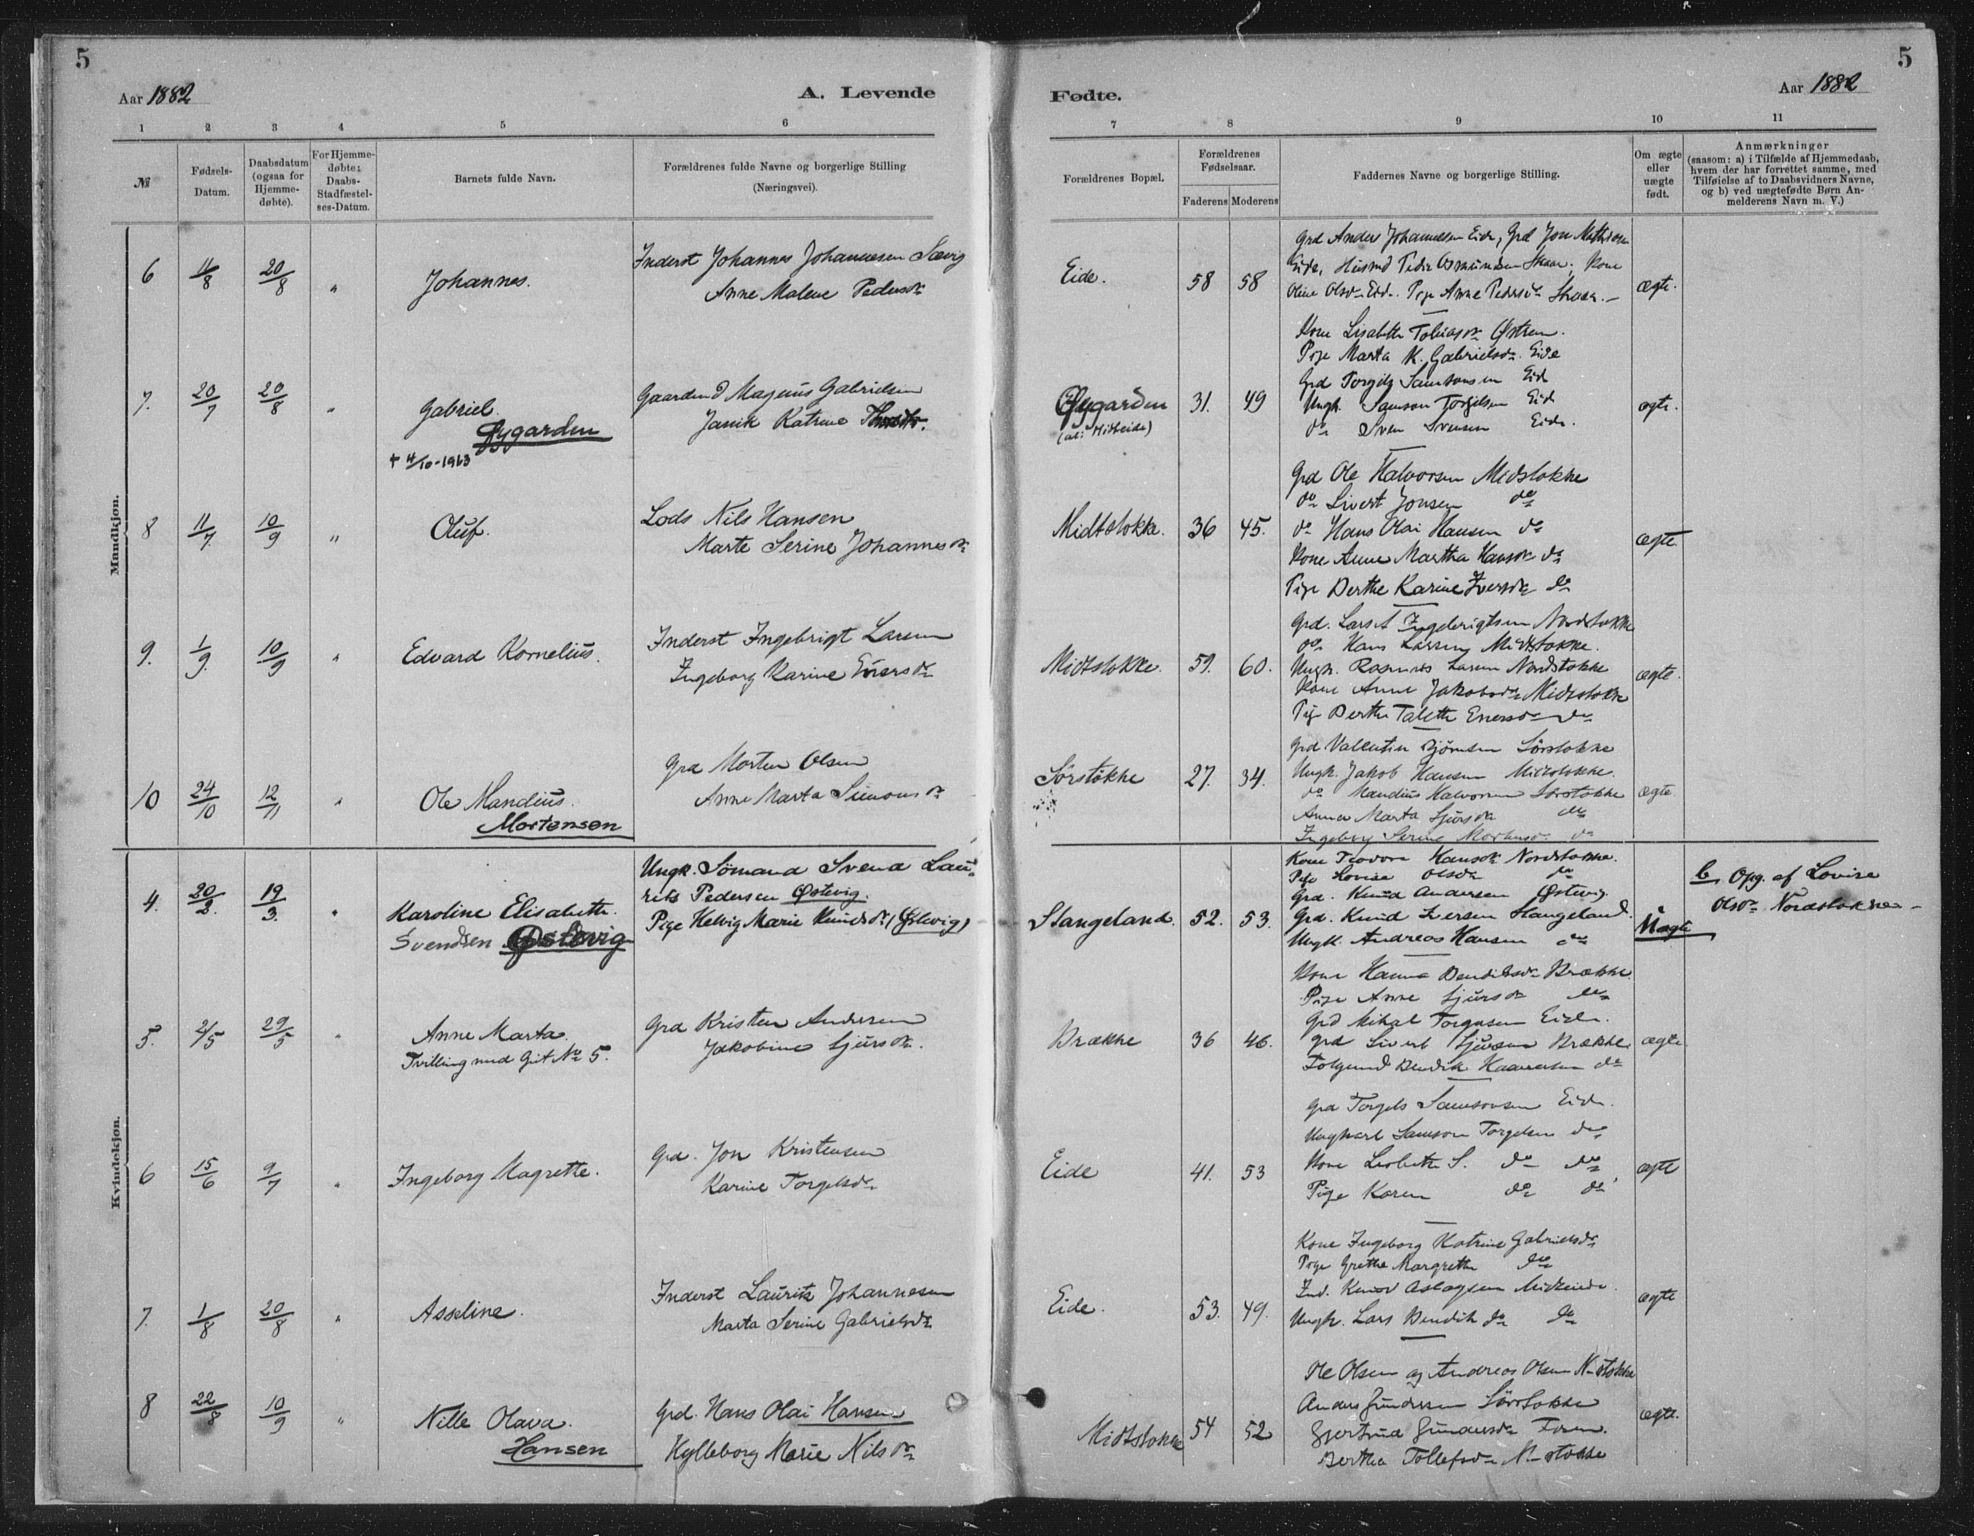 5
Aar 1882
A. Levende
1 2 3 4 5 6
№
Fødsels-Datum.
Daabsdatum (ogsaa for Hjemme-døbte).
For Hjemme-døbte; Daabs-Stadfæstel-ses-Datum.
Barnets fulde Navn.
Forældrenes fulde Navne og borgerlige Stilling
(Næringsvei).
Mandkjøn.
6 11/8 20/8 " Johannes.
Inderst Johannes Johannesen Sævig
Anne Malene Pedersdr
7. 20/7 20/8 " Gabriel.
Øygarden
+ 4/10-1963
Gaardmd Magnus Gabrielsen
Janik Katrine
8 11/7 10/9 " Oluf.
Lods Nils Hansen
Marte Serine Johannesdr
9. 1/9. 10/9 " Edvard Kornelius.
Inderst Ingebrigt Larsen
Ingeborg Karine Enersdr
10 24/10 12/11 " Ole Mandius.
Mortensen
Grd Morten Olsen
Anne Marta Simonsdr
Kvindekjøn.
4. 20/2. 19/3. " Karoline Elisabeth.
Svendsen Østevig
Ungk. Sømand Svend Lau-
rits Pedersen Østevig.
Pige Helvig Marie Knudsdr (Østevig)
5. 2/5 29/5 " Anne Marta.
Tvilling med Gut No 5.
Grd Kristen Andersen
Jakobine Sjursdr.
6 15/6 9/7 " Ingeborg Magrette.
Grd. Jon Kristensen
Karine Torgelsdr
7. 1/8 20/8 " Asseline.
Inderst Laurits Johannesen
Marta Serine Gabrielsdr
8 22/8 10/9 " Nille Olava.
Hansen
Grd. Hans Olai Hansen
Hylleborg Marie Nilsdr
5
Fødte.
Aar 1882
7 8 9 10 11
Forældrenes Bopæl.
Forældrenes Fødselsaar.
Faderens Moderens
Faddernes Navne og borgerlige Stilling.
Om ægte eller uægte født.
Anmærkninger
(saasom: a) i Tilfælde af Hjemmedaab,
hvem der har forrettet samme, med
Tilføielse af to Daabsvidners Navne,
og b) ved uægtefødte Børn An-
melderens Navn m. V.)
Eide. 58 58 ægte.
Grd Anders Johannesen Eide, Grd Jon Mathiesen
Eide, Husmd Peder Asmundsen Skaar, Kone
Oline Olsdr Eide. Pige Anne Pedersdr Skaar.
Øygarden 31. 49 ægte.
(al: Midteide)
Kone Lisabeth Tobiasdr Østrem.
Pige Marta K. Gabrielsdr. Eide
Grd Torgils Samsonsen Eide
Ungk. Samson Torgilsen Eide
do Sven Svensen Eide.
Midtstokke. 36 45. ægte
Grd Ole Halvorsen Midstokke
do Sivert Jonsen do
do Hans Olai Hansen do
Kone Anne Martha Hansdr do
Pige Berthe Karine Iversdr do
Midtstokke. 59. 60. ægte.
Grd. Lars Ingebrigtsen Nordstokke
do Hans Larsen Midtstokke.
Ungk. Rasmus Larsen Nordstokke
Kone Anne Jakobsdr Midtstokke
Pig Berthe Taletta Enersdr do
Sørstokke 27. 34. ægte
Grd Valentin Bjørnsen Sørstokke
Ungk. Jakob Hansen Midtstokke.
do Mandius Halvorsen Sørstokke
Anna Marta Sjursdr do
Ingeborg Serine Mortensdr. do
Stangeland. 52. 53. Uægte
Kone Teodora Hansdr Nordstokke.
Pige Lovise Olsdr do
Grd. Knud Andersen Østevig
Grd. Knud Iversen Stangeland.
Ungk. Andreas Hansen do
b Opg. af Lovise
Olsdr Nordstokke
Brække 36 46. ægte
Kone Hanna Bendiksdr Brække.
Pige Anne Sjursdr do
Grd Mikal Torgersen Eide.
Grd Sivert Sjursen Brække
Bendik do
Eide 41. 53 ægte
Grd Torgels Samsonsen Eide.
Ungkarl Samson Torgelsen do
Kone Lisbeth S. do do
Pige Karen do do
Eide. 53. 49. ægte
Kone Ingeborg Katrine Gabrielsdr
Pige Grethe Margrethe do
Ind. Knud Aslagsen Midteide.
Ungk. Lars Bendik do do
Midtstokke 54 52 ægte.
Ole Olsen og Andreas Olsen N-stokke
Anders Gundersen Sørstokke
Gjertrud Gundersdr
Bertha Tollefsdr N-stokke